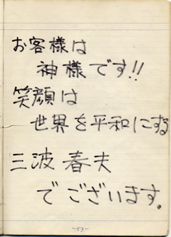 お客様は
神様です!!
笑顔は
世界を平和にする
三波春夫
でございます。